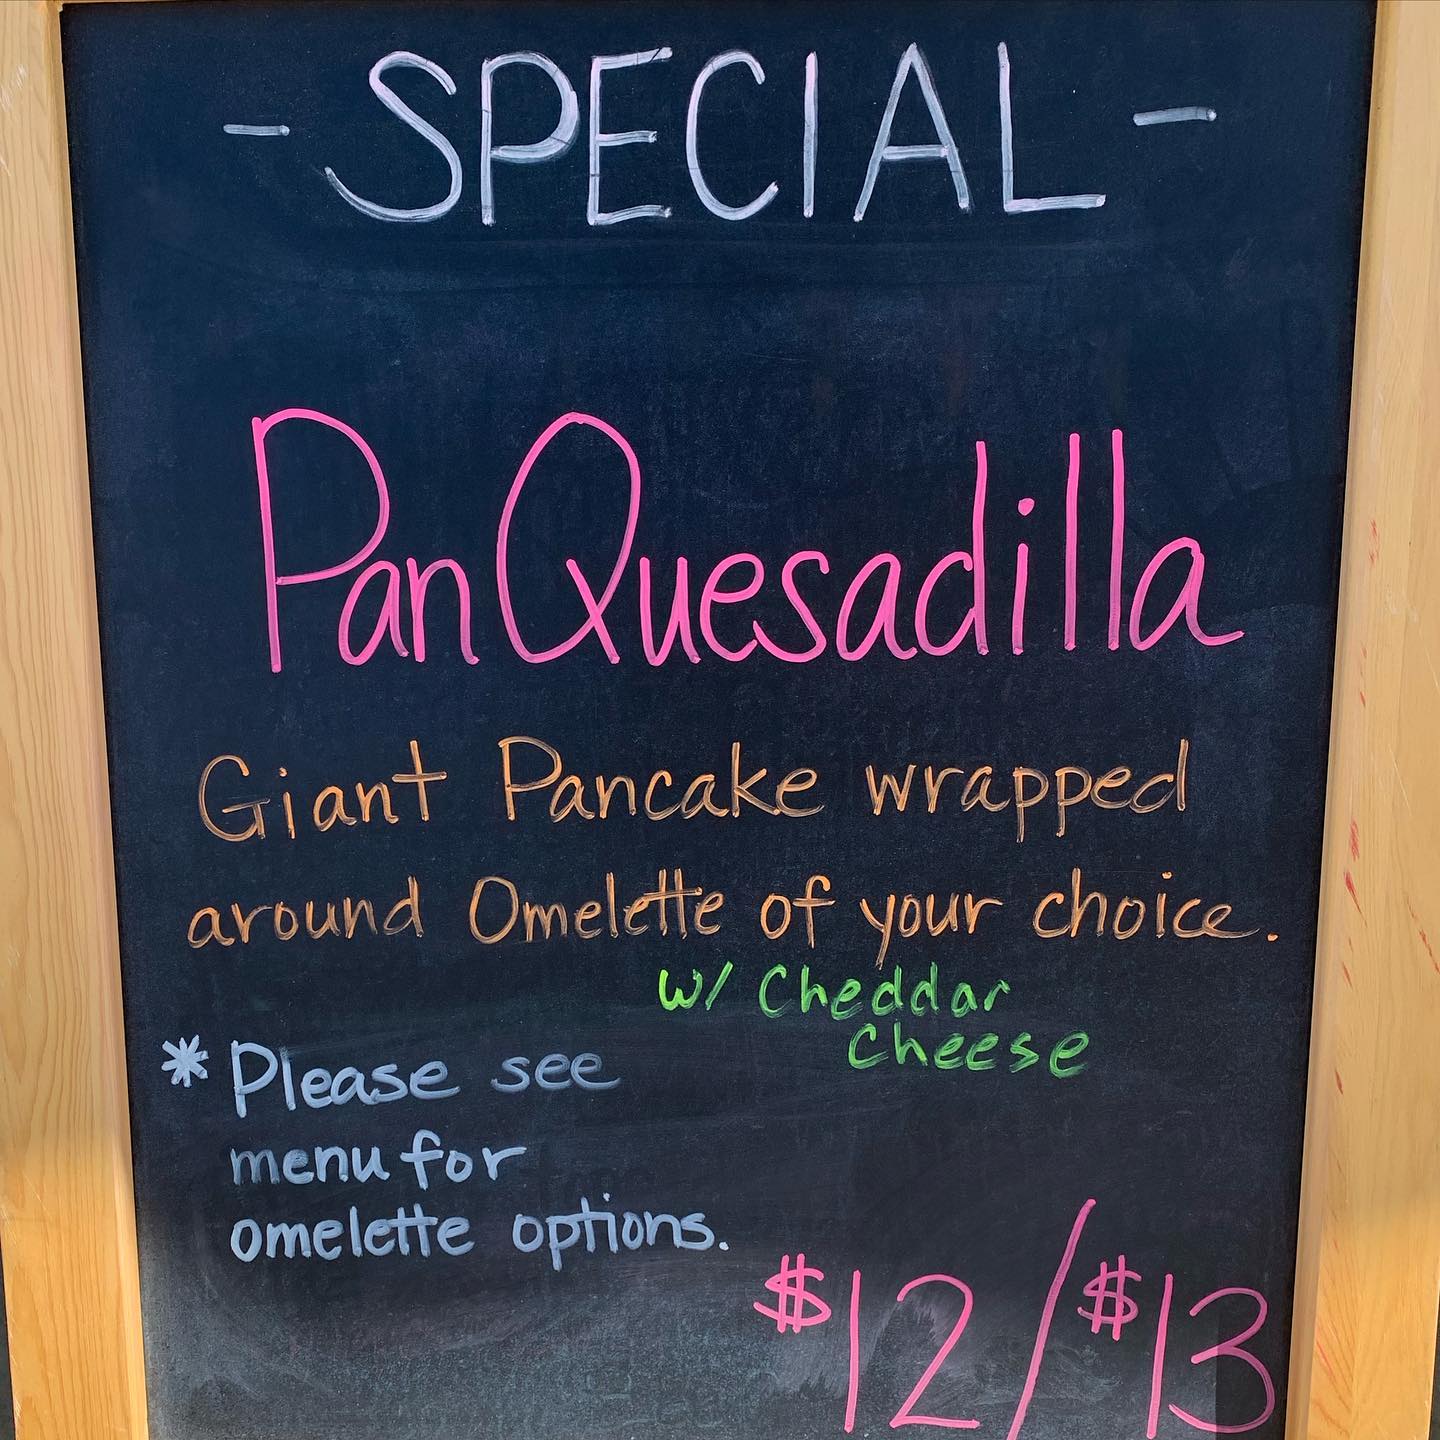 - SPECIAL -
PanQuesadilla
Giant Pancake wrapped
around Omelette of your choice.
w/ Cheddar
Cheese
* Please see
menu for
omelette options.
$12/$13